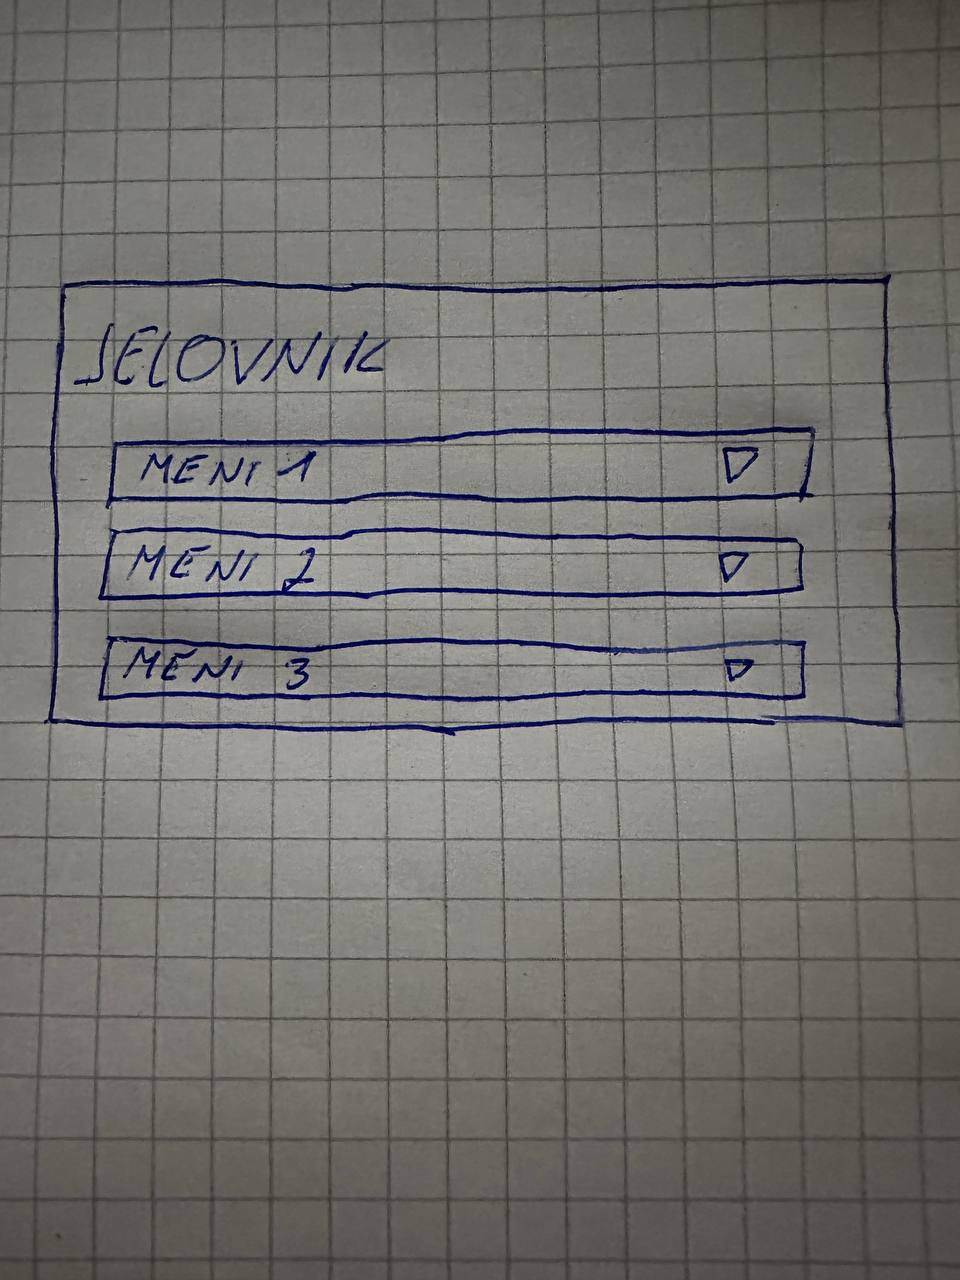 JELOVNIK
MENI 1
MENI 2
MENI 3